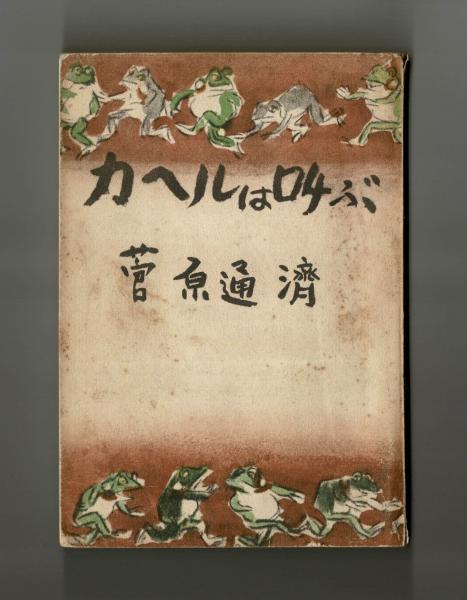 カヘルは叫ぶ
菅原通濟